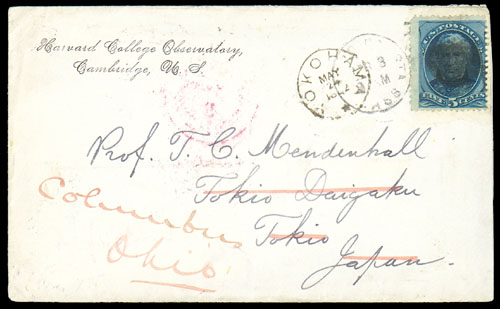 Harvard College Observatory,
Cambridge, U. S.
YOKOHAMA
MAY
24
U.S. POSTAGE
FIVE 5 CENTS
Prof. T. C. Mendenhall
Tokio Daigaku
Tokio
Japan.
Columbus
Ohio